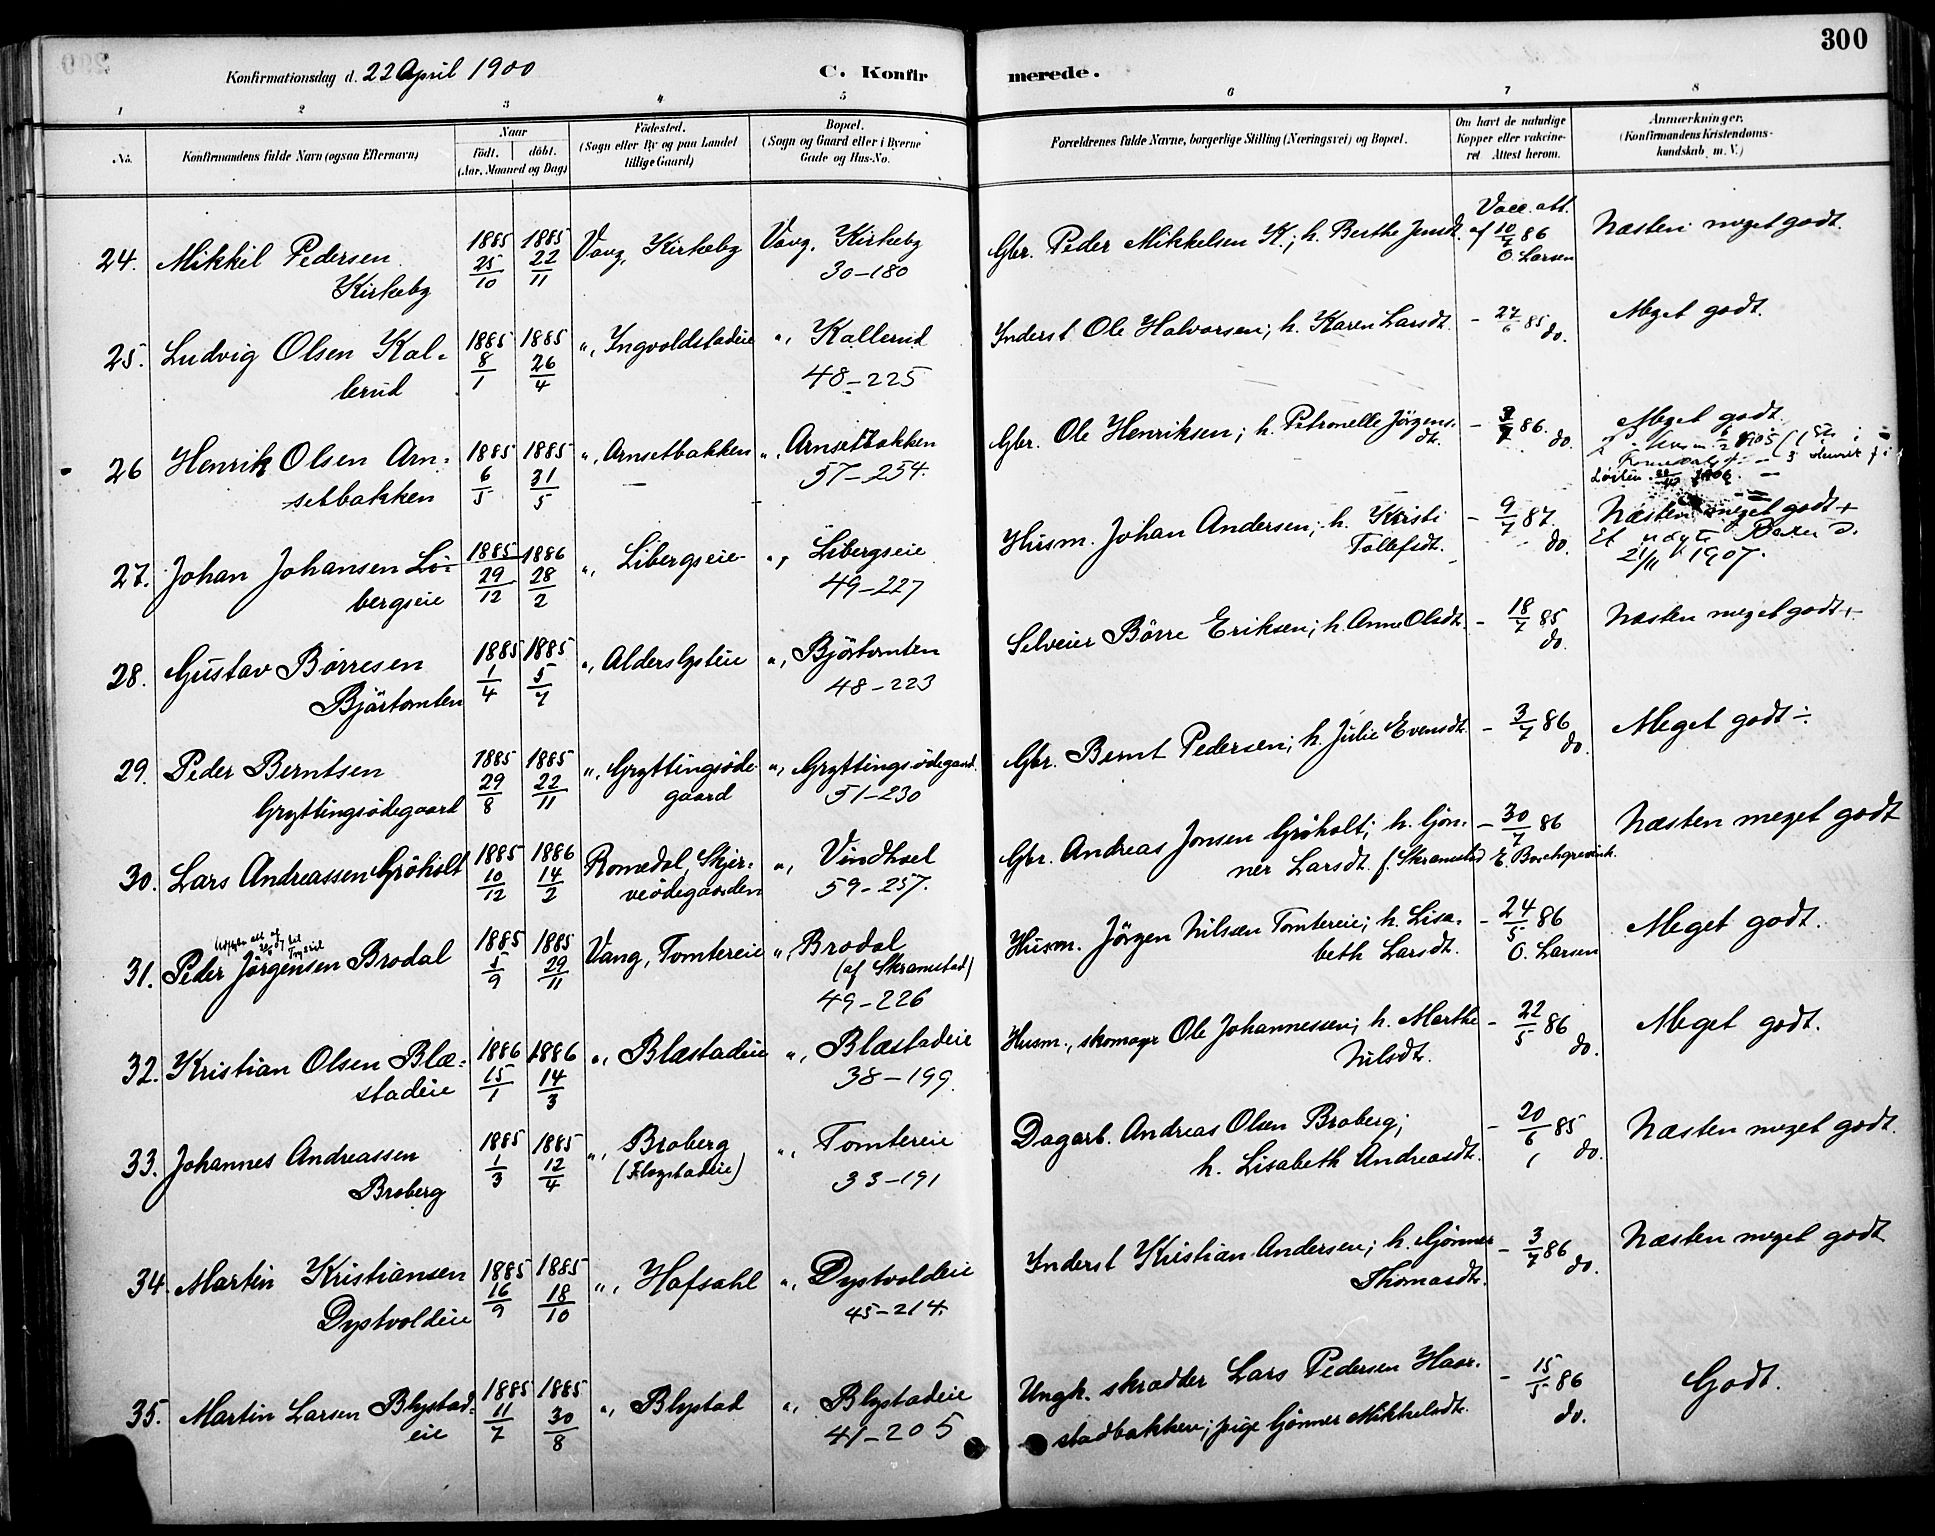 300
Konfirmationsdag d. 22 April 1900
C. Konfirmerede.
1 2 3 4 5 6 7 8
No.
Konfirmandens fulde Navn (ogsaa Efternavn)
Naar
født. døbt.
(Aar, Maaned og Dag)
Fødested.
(Sogn eller By og paa Landet
tillige Gaard)
Bopæl.
(Sogn og Gaard eller i Byerne
Gade og Hus-No.
Forældrenes fulde Navne, borgerlige Stilling (Næringsvei) og Bopæl.
Om havt de naturlige
Kopper eller vakcine-
ret Attest herom.
Anmærkninger.
(Konfirmandens Kristendoms-
kundskab m. V.)
24. Mikkil Pedersen Kirkeby 1885 25/10 1885 22/11 Vang, Kirkeby Vang, Kirkeby 30-180 Gbr. Peder Mikkelsen K.; h. Berthe Jensdt. Vacc. att. af 10/7 86 O. Larsen Næsten meget godt.
25. Ludvig Olsen Kallerud 1885 8/1 1885 26/4 „, Ingvoldstadeie „, Kallerud 48-225 Inderst Ole Halvorsen; h. Karen Larsdt. - 27/6 85 do. Meget godt.
26 Henrik Olsen Arnsetbakken 1885 6/5 1885 31/5 „, Arnsetbakken „, Arnsetbakken 57-254. Gbr. Ole Henriksen; h. Petronelle Jörgensdt. - 86. do. Meget godt.
1905
Løiten 1906
27. Johan Johansen Libergseie 1885 29/12 1886 28/2 „, Libergseie „, Libergseie 49-227 Husm. Johan Andersen; h. Kristi Tollefsdt. - 9/7 87. do. Næsten meget godt +
Et udgt.
21/11 1907.
28. Gustav Börresen Björtomten 1885 1/4 1885 5/7 „, Alderslysteie „, Björtomten 48-223 Selveier Börre Eriksen; h. Anne Olsdt. - 18/7 85 do. Næsten meget godt +
29. Peder Berntsen Gryttingsödegaard 1885 29/8 1885 22/11 „, Gryttingsödegaard „, Gryttingsödegaard 51-230 Gbr. Bernt Pedersen; h. Julie Evensdt. - 3/7 86 do. Meget godt ÷
30. Lars Andreassen Gröholt 1885 10/12 1886 14/2 Romedal, Skjerveödegaarden „, Vindhoel 59-257. Gbr. Andreas Jonsen Gröholt; h. Gönner Larsdt. f. Skramstad - 30/7 86 E. Borchgrevink. Næsten meget godt
31. Peder Jörgensen Brodal 1885 5/9 1885 29/11 Vang, Tomtereie „, Brodal (af Skramstad) 49-226 Husm. Jörgen Nilsen Tomtereie; h. Lisabeth Larsdt. - 24/5 86 O. Larsen Meget godt.
32. Kristian Olsen Blæstadeie 1886 15/1 1886 14/3 „, Blæstadeie „, Blæstadeie 38-199. Husm., skomager Ole Johannessen; h. Marthe Nilsdt. - 22/5 86 do. Meget godt.
33. Johannes Andreassen Broberg 1885 1/3 1885 12/4 „, Broberg (Flagstadeie) „, Tomtereie 33-191 Dagarb. Andreas Olsen Broberg; h. Lisabeth Andreasdt. - 20/6 85 do. Næsten meget godt.
34 Martin Kristiansen Dystvoldeie 1885 16/9 1885 18/10 „, Hafsahl „, Dystvoldeie 45-214. Inderst Kristian Andersen; h. Gjönner Thomasdt. - 3/7 86 do. Næsten meget godt
35. Martin Larsen Blystadeie 1885 11/7 1885 30/8 „, Blystad „, Blystadeie 41-205 Ungk. skrædder Lars Pedersen Haarstadbakken; pige Gjönner Mikkelsdt. - 15/5 86 do. Godt.